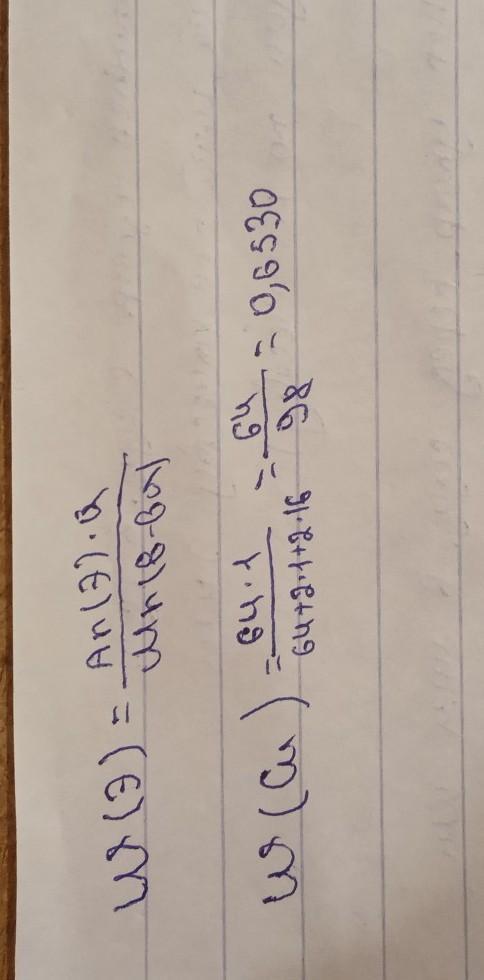 W(Э) = Ar(Э)·n / Mr(в-ва)
W(Cu) = 64·1 / 64+2·1+2·16 = 64 / 98 = 0,6530